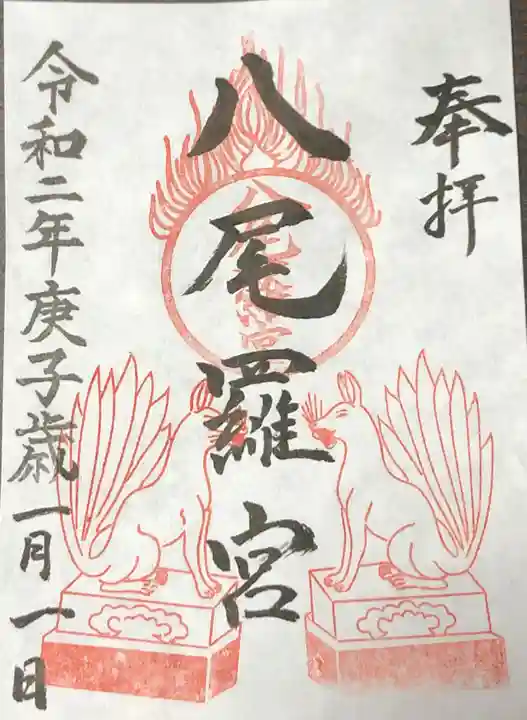 奉拝
八尾羅宮
八尾羅宮
令和二年庚子歳一月一日